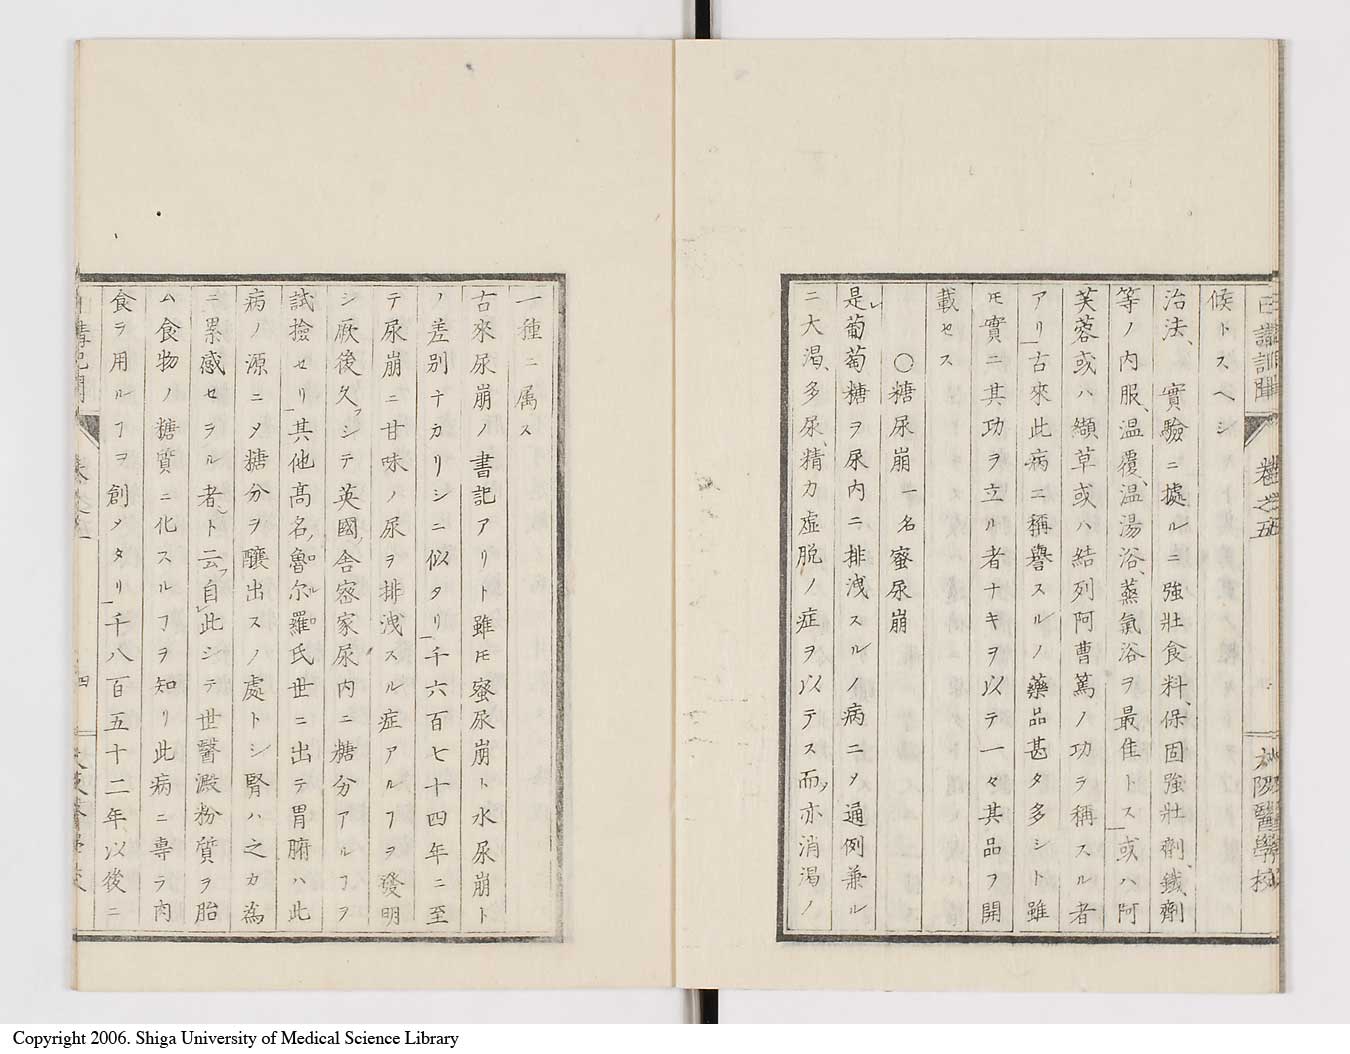 日講訓聞 卷之五 大阪醫學校
候トスヘシ
治法、實驗ニ據ルニ強壯食料、保固強壯劑、鐵劑
等ノ內服、温覆、温湯浴、蒸氣浴ヲ最佳トス或ハ阿
芙蓉或ハ纈草或ハ結列阿曹篤ノ功ヲ稱スル者
アリ古來此病ニ稱譽スルノ藥品甚タ多シト雖
𪜈實ニ其功ヲ立ル者ナキヲ以テ一々其品ヲ開
載セス
〇糖尿崩 一名蜜尿崩
是レ葡萄糖ヲ尿内ニ排洩スルノ病ニ〆通例兼ル
ニ大渴、多尿、精力虚脱ノ症ヲ以テス而ソ亦消渴ノ
一種ニ属ス
古來尿崩ノ書記アリト雖𪜈蜜尿崩ト水尿崩ト
ノ差別ナカリシニ似タリ千六百七十四年ニ至
テ尿崩ニ甘味ノ尿ヲ排洩スル症アルヿヲ發明
シ厥後久フシテ英國ノ舎密家尿内ニ糖分アルヿヲ
試撿セリ其他高名ノ魯尓羅氏世ニ出テ胃腑ハ此
病ノ源ニ〆糖分ヲ釀出スノ處トシ腎ハ之カ為
ニ累感セラル者ト云フ自レ此シテ世醫澱粉質ヲ胎
ム食物ノ糖質ニ化スルヿヲ知リ此病ニ専ラ肉
食ヲ用ルヿヲ創タリ千八百五十二年以後ニ
四
Copyright 2006. Shiga University of Medical Science Library